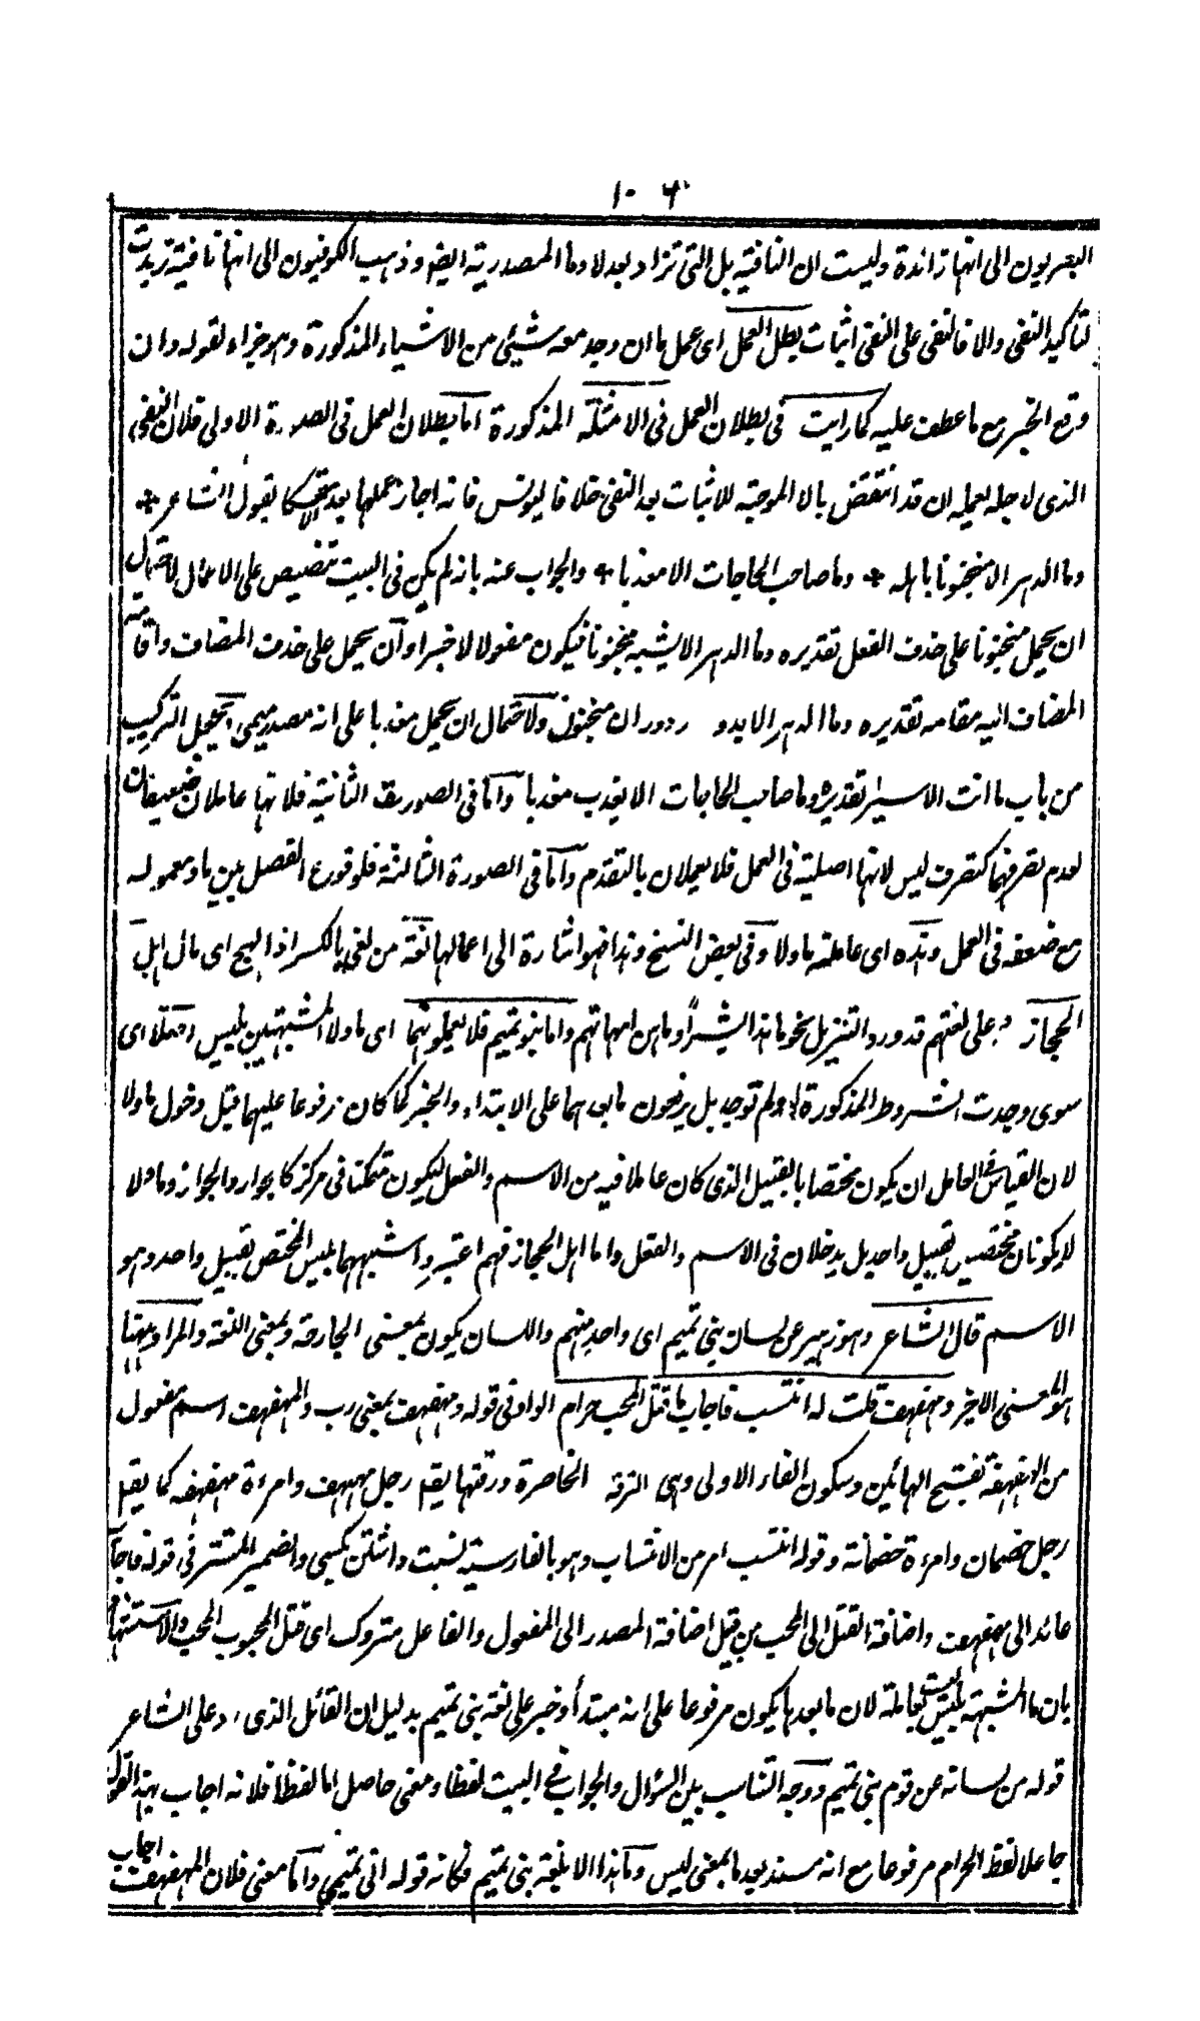 ١٠٦
البصريون الى انها زائدة وليست ان النافية بل التى تزاد بعد لا وما المصدرية ايضا و ذهب الكوفيون الى انها نافية زيدت
لتاكيد النفى والا فالنفى على النفى اثبات بطل العمل اى عمل ما ان وجد معه شيئى من الاشياء المذكورة وهو جزاء لقوله وان
وقع الخبر مع ما عطف عليه كما رايت فى بطلان العمل فى الامثلة المذكورة اما بطلان العمل فى الصورة الاولى فلان النفى
الذى لاجله يعمله ان قد انتقض بالا الموجبة للاثبات بعد النفى خلافا ليونس فانه اجاز عملها بعد كما يقول الشاعر
وما الدهر الا منجنونا باهله + وما صاحب الحاجات الا معذبا + والجواب عنه بانه لم يكن فى البيت تنصيص على الاعمال لاحتمال
ان يحمل منجنونا على حذف الفعل تقديره وما الدهر الا يشبه منجنونا فيكون مفعولا لا خبرا وان يحمل على حذف المضاف واقامته
المضاف اليه مقامه تقديره وما الدهر الا يدور دوران منجنون ولاحتمال ان يحمل معذبا على انه مصدر ميمى بجعل التركيب
من باب ما انت الا سيرا تقديره وما صاحب الحاجات الا يعذب معذبا واما فى الصورة الثانية فلانها عاملان ضعيفان
لعدم تصرفهما كتصرف ليس لانها اصلية فى العمل فلا يعملان بالتقدم واما فى الصورة الثالثة فلوقوع الفصل بين ما ومعموله
مع ضعفه فى العمل وهذه اى عاملة ما ولا وفى بعض النسخ وهذا فهو اشارة الى اعمالها لغة من لغى بالكسر اذا لهج اى مال اهل
الحجاز وعلى لغتهم قد ورد التنزيل نحو ما هذا بشرا وما هن امهاتهم واما بنو تميم فلا يعملونهما اى ما ولا المشبهتين بليس اصلا اى
سوى وجدت الشروط المذكورة او لم توجد بل يرفعون ما بعدهما على الابتداء والخبر كما كان مرفوعا عليهما قبل دخول ما ولا
لان القياس فى العامل ان يكون مختصا بالقبيل الذى كان عاملا فيه من الاسم والفعل ليكون متمكنا فى مركز كالجوار والجواز وما ولا
لا يكونان مختصين بقبيل واحد بل يدخلان فى الاسم والفعل واما اهل الحجاز فهم اعتبروا شبههما بليس المختص بقبيل واحد وهو
الاسم قال الشاعر وهو زهير عن لسان بنى تميم اى واحد منهم واللسان يكون بمعنى الجارحة وبمعنى اللغة والمراد ههنا
هو المعنى الاخير ومهفهف قلت له انتسب فاجاب ما قتل المحب حرام الواو فى قوله ومهفهف بمعنى رب والمهفهف اسم مفعول
من الهفهفة بفتح الهائين وسكون الفاء الاولى وهى الترقة الخاصرة ورقتها يقم رجل مهفهف وامرءة مهفهفه كما يقم
رجل خمصان وامرءة خمصانة وقوله انتسب امر من الانتساب وهو بالفارسية نسبت داشتن بكسى والضمير المستتر فى قوله فاجاب
عائد الى مهفهف واضافة القتل الى المحب من قبيل اضافة المصدر الى المفعول والفاعل متروك اى قتل المحبوب المحب والاستشهاد
بان ما المشبهة بليس ليست بعاملة لان ما بعدها يكون مرفوعا على انه مبتدأ وخبر على لغة بنى تميم بدليل ان القائل الذى ادعى الشاعر
قوله من لسانه من قوم بنى تميم ووجه التناسب بين السؤال والجواب فى البيت لفظا ومعنى حاصل اما لفظا فلانه اجاب بهذا القول
جاعلا لفظ الحرام مرفوعا مع انه مسند بعد ما بمعنى ليس وما هذا الا بلغة بنى تميم فكانه قوله انى تميمى واما معنى فلان المهفهف اجاب